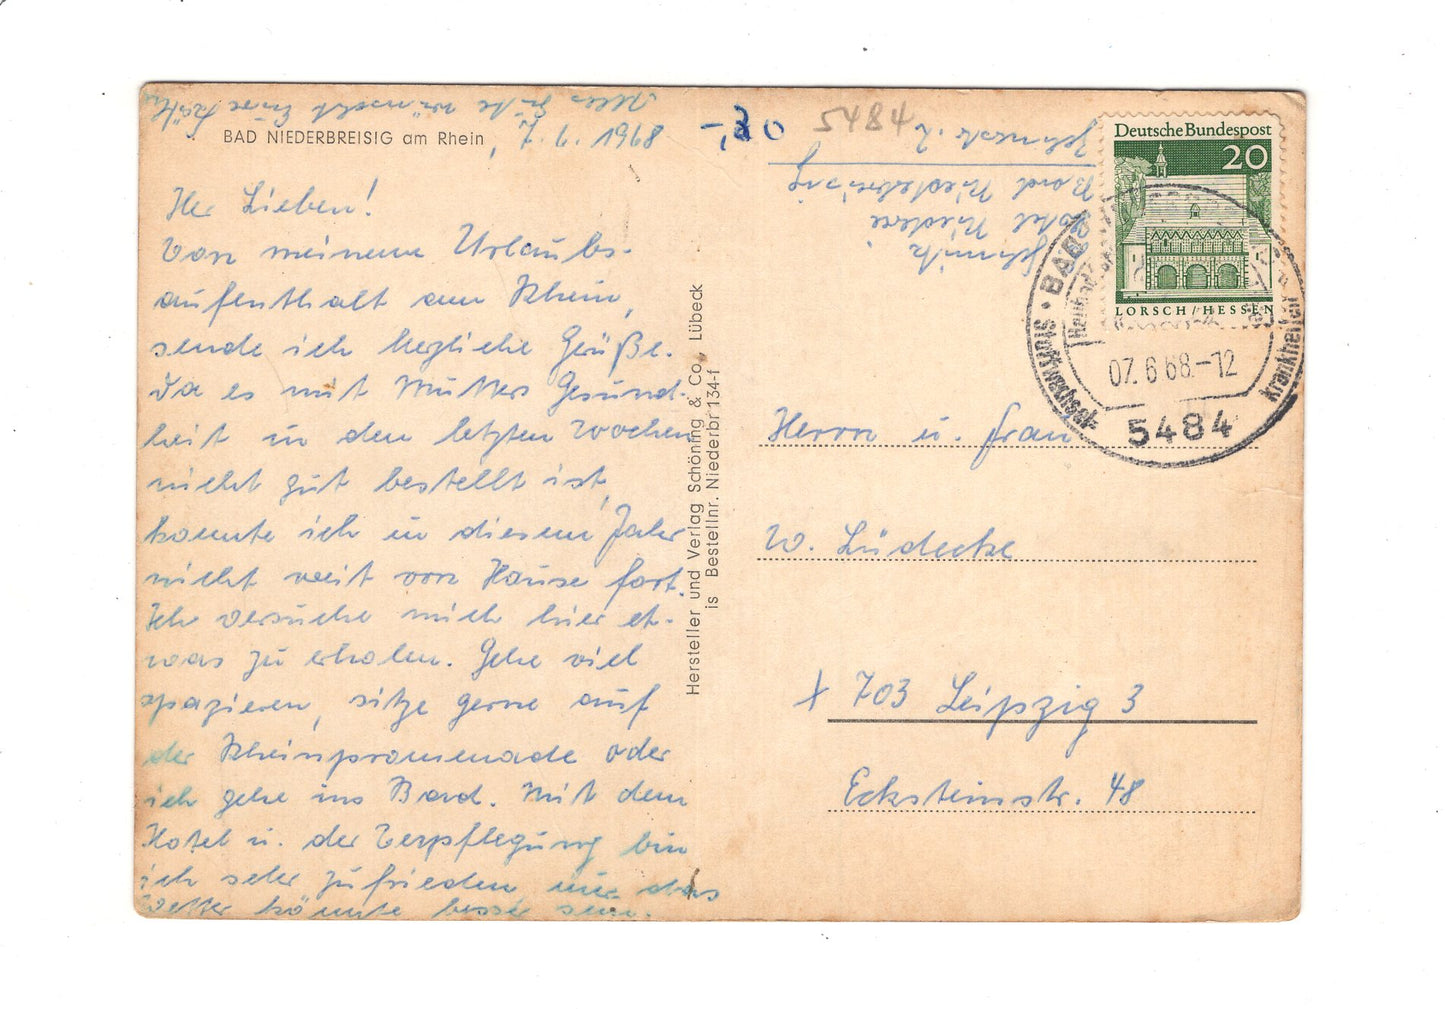 BAD NIEDERBREISIG am Rhein
7. 6. 1968
Ihr Lieben!
Von meinem Urlaubs-
aufenthalt am Rhein,
sende ich herzliche Grüße.
Da es mit Mutters Gesund-
heit in den letzten Wochen
nicht gut bestellt ist,
konnte ich in diesem Jahr
nicht weit von Hause fort.
Ich versuche mich hier et-
was zu erholen. Gehe viel
spazieren, sitze gerne auf
der Rheinpromenade oder
ich gehe ins Bad. Mit dem
Hotel u. der Verpflegung bin
ich sehr zufrieden nur das
Wetter könnte besser sein.
Alles Gute wünscht Eure
Hersteller und Verlag Schöning & Co., Lübeck
is Bestellnr. Niederbr 134-f
-,30
5484
Schmitz
Hotel
Bad Niederbreisig
Deutsche Bundespost
20
LORSCH/HESSEN
BAD
Stoffwechsel-
Krankheiten
07.6.68.-12
5484
Herrn u. Frau
W. Lüdecke
X 703 Leipzig 3
Ecksteinstr. 48